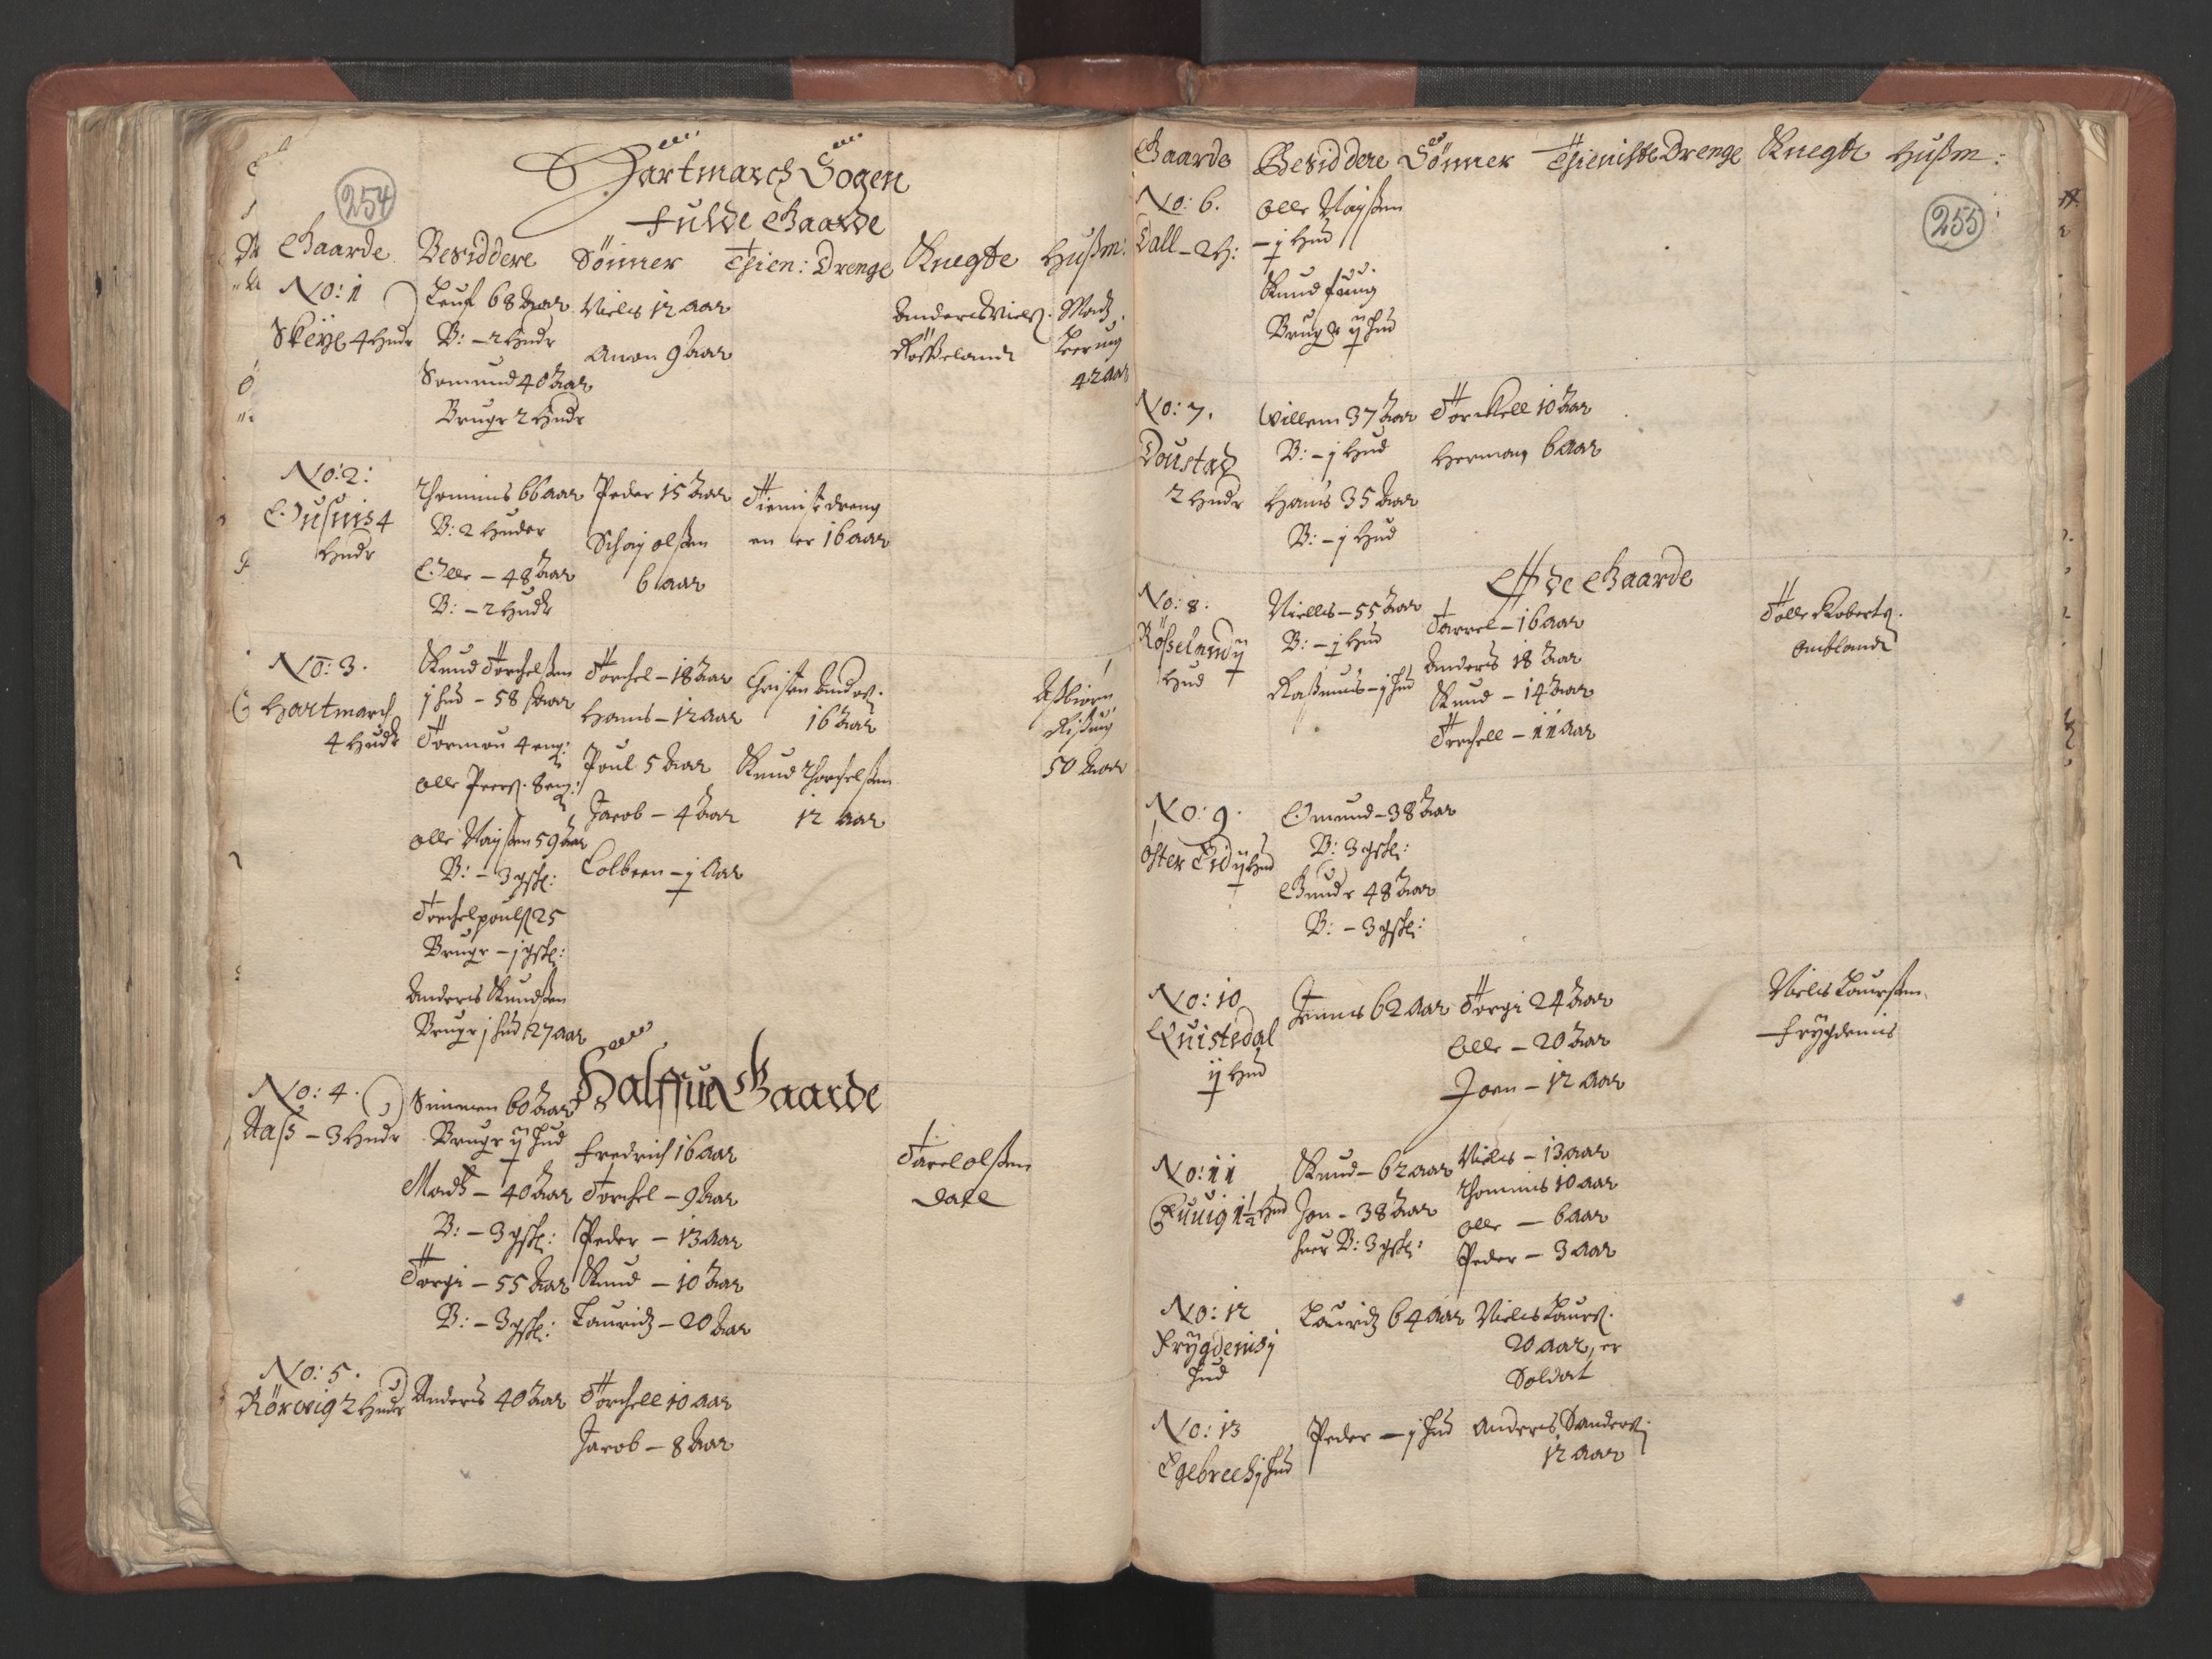 254
Hartmarch Sogen
Fulde Gaarde
Gaarde Besiddere Sönner Thien: Drenge Knegte Hußm:
No: 1
Skeye 4 Hudr
Leuf 68 Aar
B: - 2 Hudr
Somund 40 Aar
Bruger 2 Hudr
Niels 12 Aar
Anon 9 Aar
Anders Nielß.
Rösseland
Madz
42 Aar
No: 2:
4
Hudr
Thommes 66 Aar
B: 2 Huder
Olle - 48 Aar
B: - 2 Hudr
Peder 15 Aar
Olßen
6 Aar
Tieniste dreng
en er 16 Aar
No: 3.
Hartmarch
4 Hudr
Knud Torchelßen
j Hud - 58 Aar
Tormou 4 eng:
Olle Peerß. 8 eng:
Olle Nayßen 59 Aar
B: - 3 gßk:
Torchel poulß 25
Bruger - j gßk:
Anders Knudßen
Bruger j Hud 27 Aar
Torchel - 18 Aar
Hans - 12 Aar
Poul 5 Aar
Jacob - 4 Aar
Colbeen - j Aar
Christen Anderß.
16 Aar
Knud Thorchelßen
12 Aar
Aßbiørn
Rißing
50 Aar
Halffue Gaarde
No: 4.
Aaß - 3 Hudr
Simmen 60 Aar
Bruger ij Hud
Madz - 40 Aar
B: - 3 gßk:
Torgi - 55 Aar
B: - 3 gßk:
Fredrich 16 Aar
Torchel - 9 Aar
Peder - 13 Aar
Knud - 10 Aar
Lauridz - 20 Aar
Tarel Olßen
Dall
No: 5.
Rörvig 2 Hudr
Anders 40 Aar
Torchell 10 Aar
Jacob - 8 Aar
255
Gaarde Besiddere Sönner Thieniste Drenge Knegte Hußm:
No: 6.
Dall - 2 H:
Olle Nayßen
- j Hud
Knud
Brugr ij Hud
No: 7.
Doustad
2 Hudr
Willem 37 Aar
B: - j Hud
Hans 35 Aar
B: - j Hud
Torkell 10 Aar
Herman 6 Aar
Øde Gaarde
No: 8.
Rößeland ij
Hud
Niells - 55 Aar
B: - j Hud
Rasmus - j Hud
Tarrel - 16 Aar
Anders 18 Aar
Knud - 14 Aar
Torchell - 11 Aar
Tolle Robertß.
Omland
No: 9.
Øster Eid ij Hud
Omund - 38 Aar
B: 3 gßk:
Gunder 48 Aar
B: - 3 gßk:
No: 10
Quistedal
ij Hud
Jens 62 Aar
Torgi 24 Aar
Olle - 20 Aar
Joen - 12 Aar
Niels Laurßen
Frygdenis
No: 11
1 1/2 Hud
Knud - 62 Aar
Jon - 38 Aar
huer B: 3 gßk:
Niels - 13 Aar
Thommis 10 Aar
Olle - 6 Aar
Peder - 3 Aar
No: 12
Frygdenis j
Hud
Lauridz 64 Aar
Niels Laurß.
20 Aar, er
Soldat
No: 13
Egebrech j Hud
Peder - j Hud
Anders Sanderß:
12 Aar